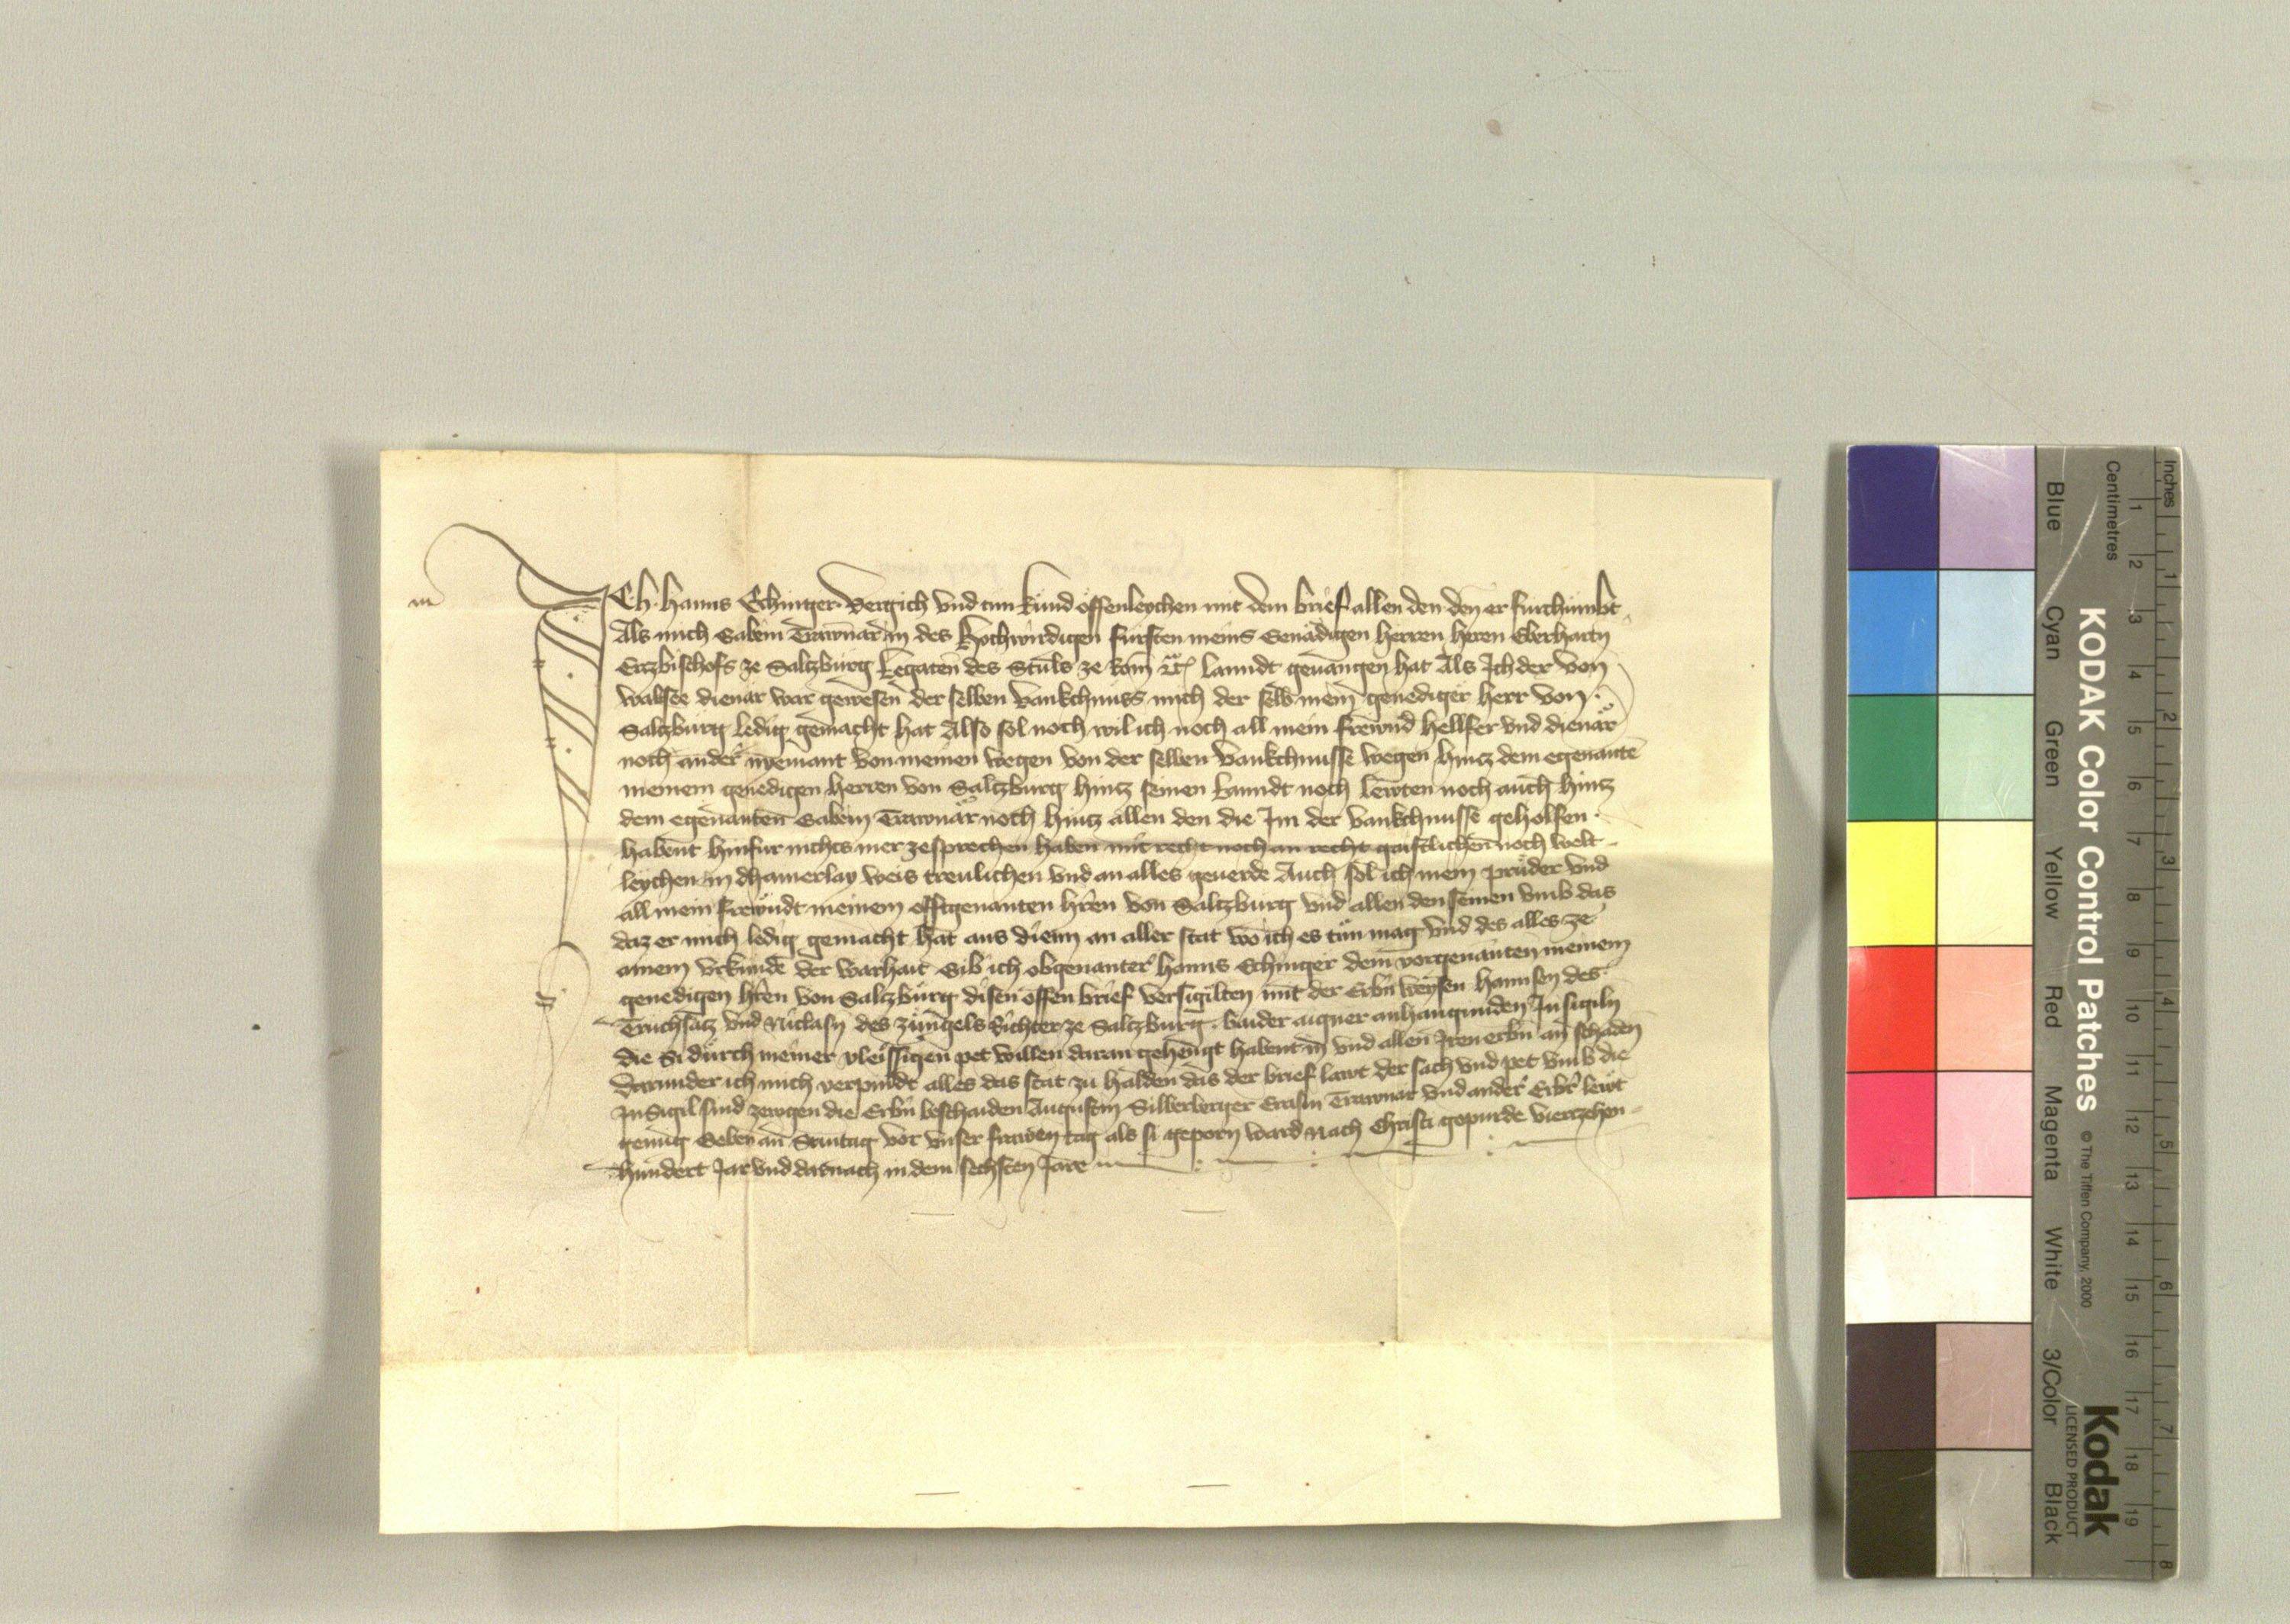 ICh Hanns Echinger vergich vnd tun kund offenleychen mit dem brief allen den den er furchumbt
Als mich Gabein Trawnär in des Hochwirdigen fürsten meins Genädigen Herren Heren Eberharts
Ertzbischofs ze Saltzburg Legaten des Stuls ze Rom lanndt geuangen hat Als Ich der von
walsee dienär war gewesen der selben vankchnuss mich der selb mein genediger herr von
Saltzburg ledig gemacht hat Also sol noch wil ich noch all mein frewnd hellfer vnd dienär
noch ander nyemant von meinen wegen von der selben vankchnusse wegen hincz dem egenanten
meinem genedigen herren von Saltzburg hincz seinen lanndt noch lewten noch auch hintz
dem egenanten Gabein Trawnär noch hintz allen den die Im der vankchnusse geholfen
habent hinfur nichts mer zesprechen haben mit recht noch an recht gaistlichen noch welt
leychen in dhainerlay weis treulichen vnd an alles geuerde Auch sol ich mein prüder vnd
all mein frewndt meinem offtgenanten hren von Saltzburg vnd allen den seinen vmb das
daz er mich ledig gemacht hat aus dienn an aller stat wo ich es tün mag vnd des alles ze
ainem vrkunde der warhait Gib ich obgenanter hanns Echinger dem vorgenanten meinem
genedigen hren von Saltzburg disen offen brief versigilten mit der Erbn weysen hannsen des
Truchsätz vnd Niclasn des zungels Richter ze Saltzburg baider aigner anhangunden Insigiln
die Si durch meiner vleissigen pet willen daran gehengt habent in vnd allen Iren erbn an schaden
darunder ich mich verpindt alles das stat zu halden das der brief lawt der sach vnd pet vmb die
InSigil sind zewgen die Erbn beschaiden Augustin Silberberger Erasm Trawnär vnd ander Erbr lewt
genug Geben an Suntag vor vnser frawen tag als si geporn ward Nach Christi gepurde vierzehen
hundert Jar vnd darnach in dem sechsten Jare
KODAK Color Control Patches
© The Tiffen Company, 2000
Kodak
LICENSED PRODUCT
Blue Cyan Green Yellow Red Magenta White 3/Color Black
Centimetres
1 2 3 4 5 6 7 8 9 10 11 12 13 14 15 16 17 18 19
Inches
1 2 3 4 5 6 7 8